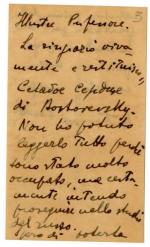 3
Illustre Professore.
La ringrazio viva
mente e restituisco
di Dostoievsky.
Non ho potuto
leggerlo tutto perchè
sono stato molto
occupato, ma certa-
mente intendo
proseguire nello studio
del russo.
Spero di poterla